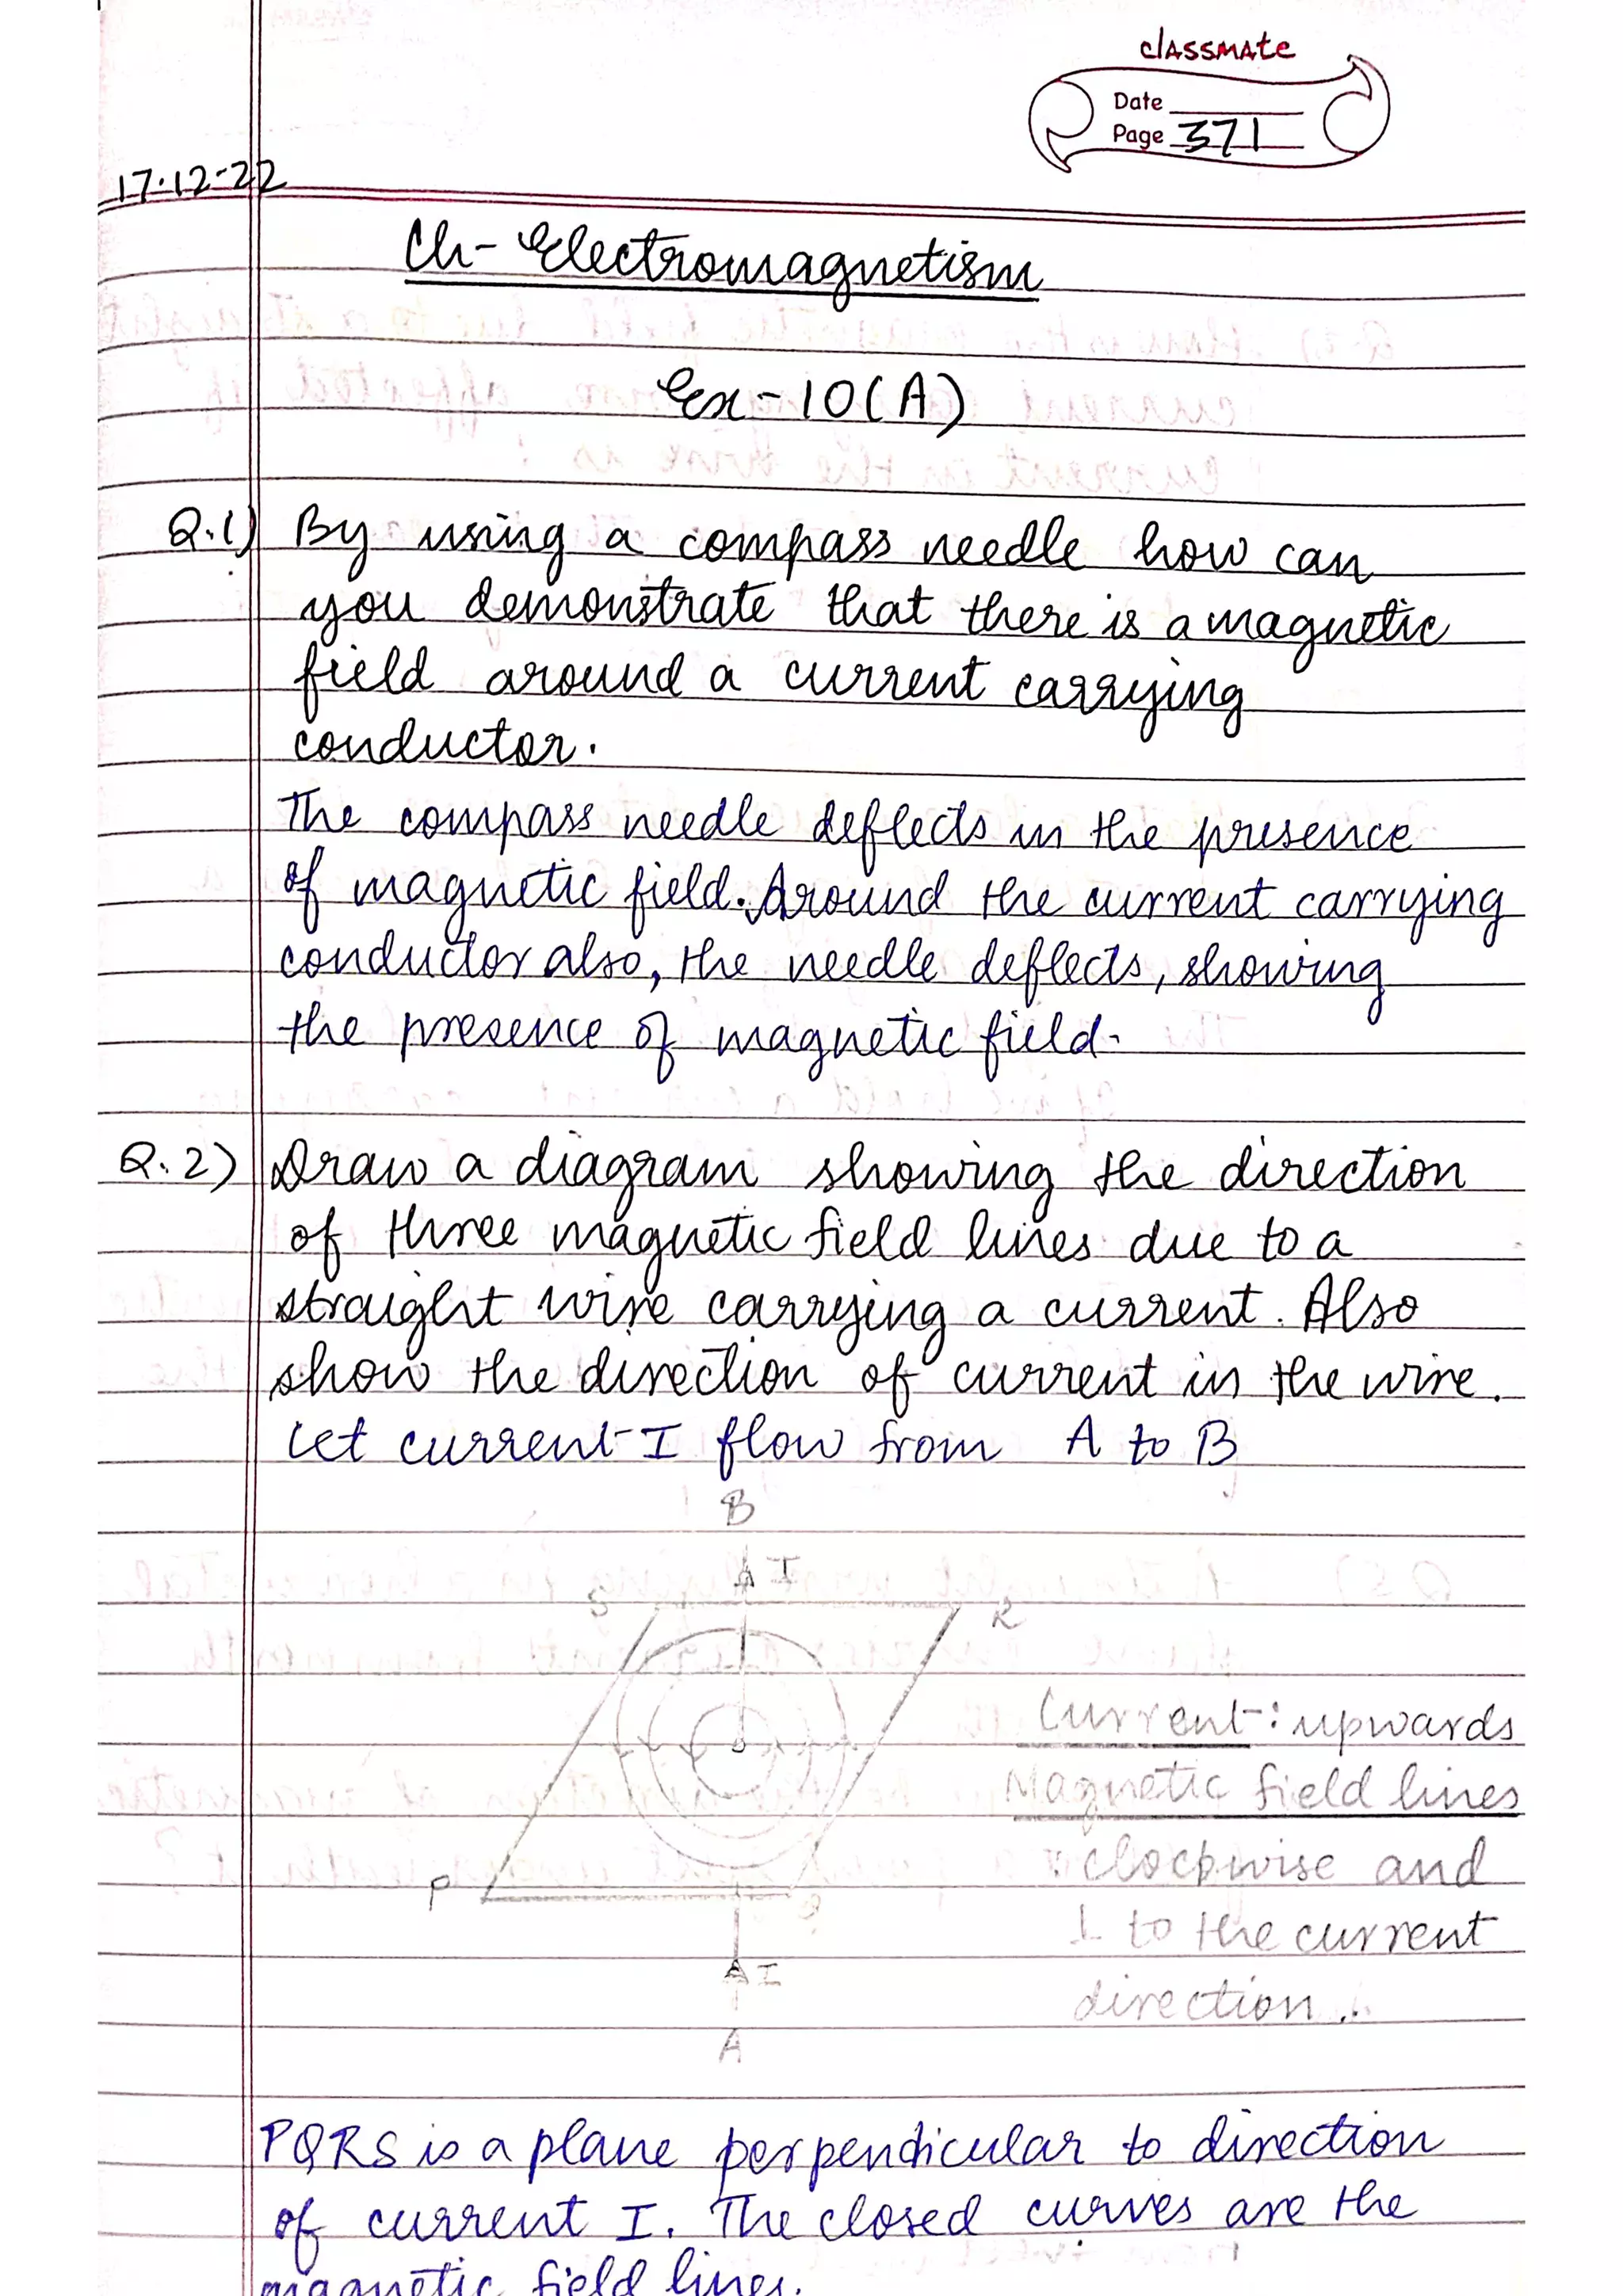 classmate
Date
Page 371
17.12-22
Ch- Electromagnetism
Ex-10(A)
Q.1) By using a compass needle how can
you demonstrate that there is a magnetic
field around a current carrying
conductor.
The compass needle deflects in the presence
of magnetic field. Around the current carrying
conductor also, the needle deflects, showing
the presence of magnetic field.
Q.2) Draw a diagram showing the direction
of three magnetic field lines due to a
straight wire carrying a current. Also
show the direction of current in the wire.
Let current I flow from A to B
B
I
S
R
Current: upwards
Magnetic field lines
: clockwise and
P
Q
⊥ to the current
I
direction.
A
PQRS is a plane perpendicular to direction
of current I. The closed curves are the
magnetic field lines.